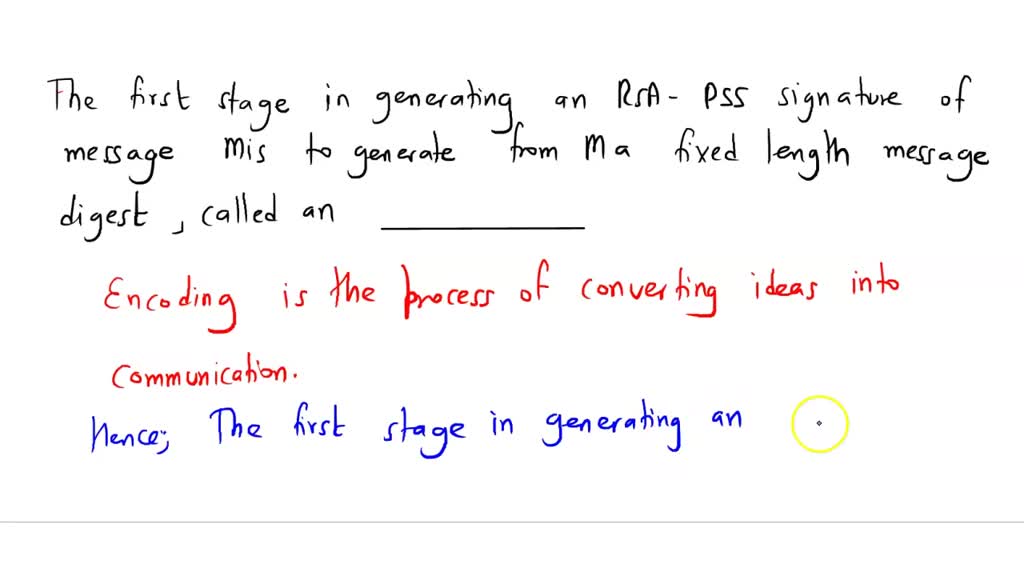 The first stage in generating an RSA - PSS signature of
message Mis to generate from Ma fixed length message
digest, called an
Encoding is the process of converting ideas into
communication.
Hence; The first stage in generating an